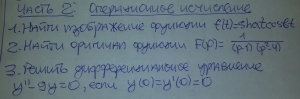 Часть 2: Операционное исчисление
1. Найти изображение функции f(t)=shatcosbt.
2. Найти оригинал функции F(p)= 1/((p-1)(p²-4))
3. Решить дифференциальное уравнение
y''-9y=0, если y(0)=y'(0)=0